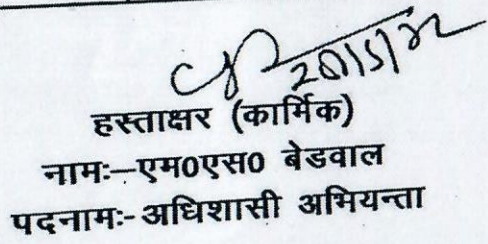 20/5/22
हस्ताक्षर (कार्मिक)
नामः–एम0एस0 बेडवाल
पदनामः- अधिशासी अभियन्ता